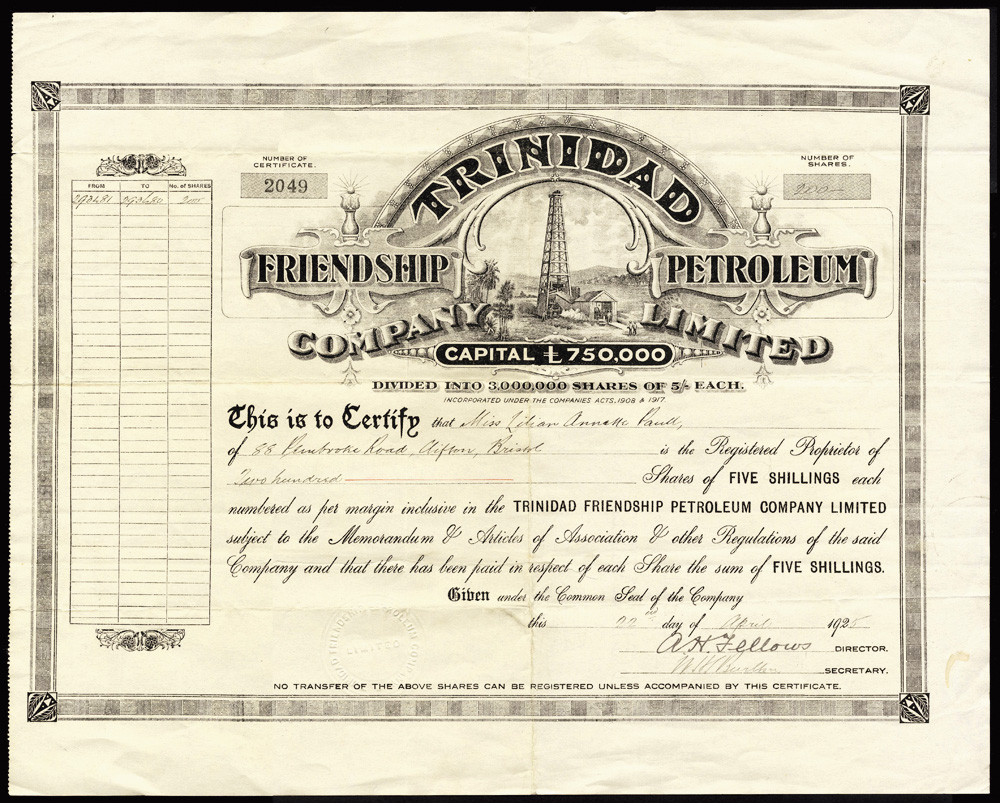 NUMBER OF
CERTIFICATE.
2049
NUMBER OF
SHARES.
200
FROM TO No. of SHARES
TRINIDAD
FRIENDSHIP PETROLEUM
COMPANY LIMITED
CAPITAL £750,000
DIVIDED INTO 3,000,000 SHARES OF 5/- EACH.
INCORPORATED UNDER THE COMPANIES ACTS, 1908 & 1917.
This is to Certify that Miss Lilian Annette
of 88 Pembroke Road, Clifton, Bristol is the Registered Proprietor of
Two hundred Shares of FIVE SHILLINGS each
numbered as per margin inclusive in the TRINIDAD FRIENDSHIP PETROLEUM COMPANY LIMITED
subject to the Memorandum & Articles of Association & other Regulations of the said
Company and that there has been paid in respect of each Share the sum of FIVE SHILLINGS.
Given under the Common Seal of the Company
this 22nd day of April 1925
A. H. Fellows DIRECTOR.
SECRETARY.
NO TRANSFER OF THE ABOVE SHARES CAN BE REGISTERED UNLESS ACCOMPANIED BY THIS CERTIFICATE.